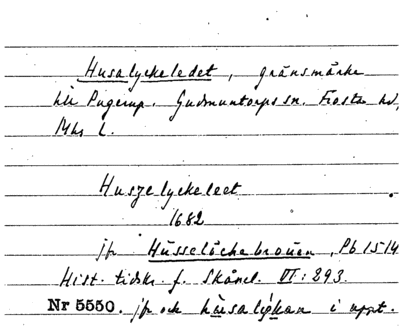 Husalyckeledet, gränsmärke
till Pugerup. Gudmuntorps sn. Frosta hd,
Mhs L.
Huszelyckeleet
1682
jfr Hüsselöchebrouen, Pb 1514
Hist. tidskr. f. Skånel. VI: 293.
Nr 5550. jfr och hùsalýkan i uppt.